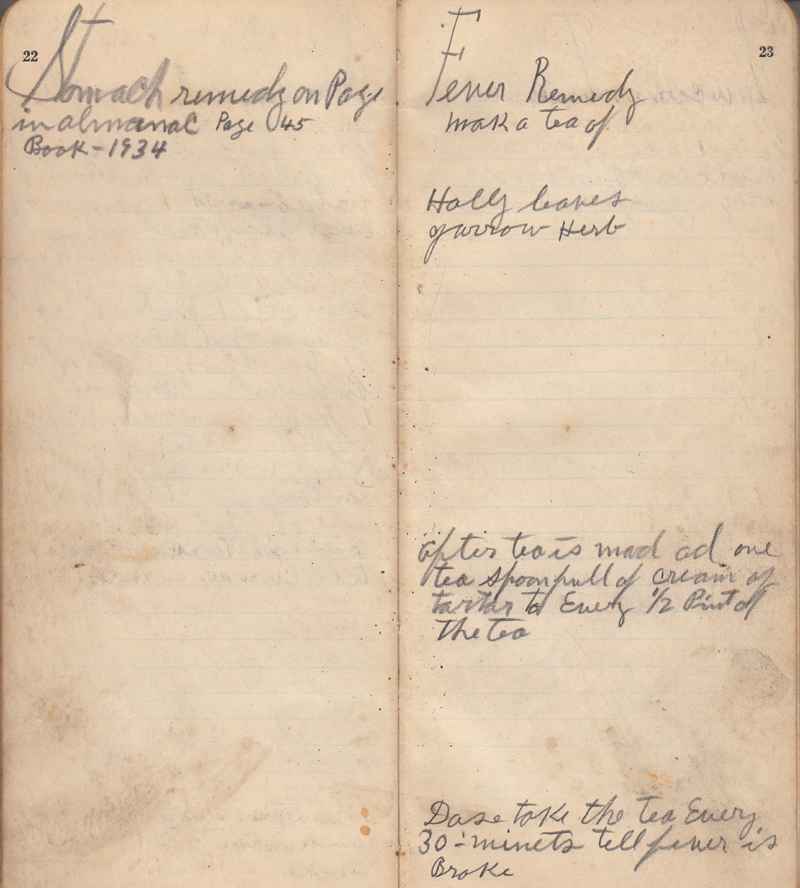 22
Stomach remedy on Page
in almanac Page 45
Book - 1934
23
Fever Remedy
mak a tea of
Holly leaves
yarrow Herb
after tea is mad ad one
tea spoonfull of cream of
tartar to Every 1/2 Pint of
the tea
Dose take the tea Every
30-minets tell fever is
Broke